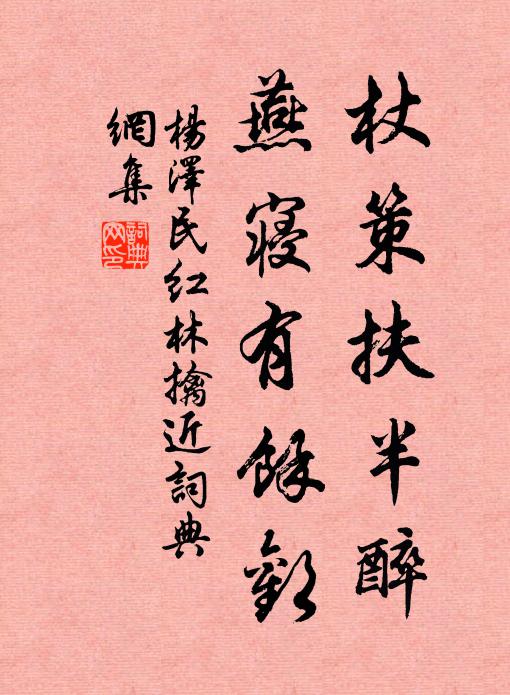 杖策扶半醉
燕寝有餘歡
楊澤民紅林擒近詞典
網集
詞典網印